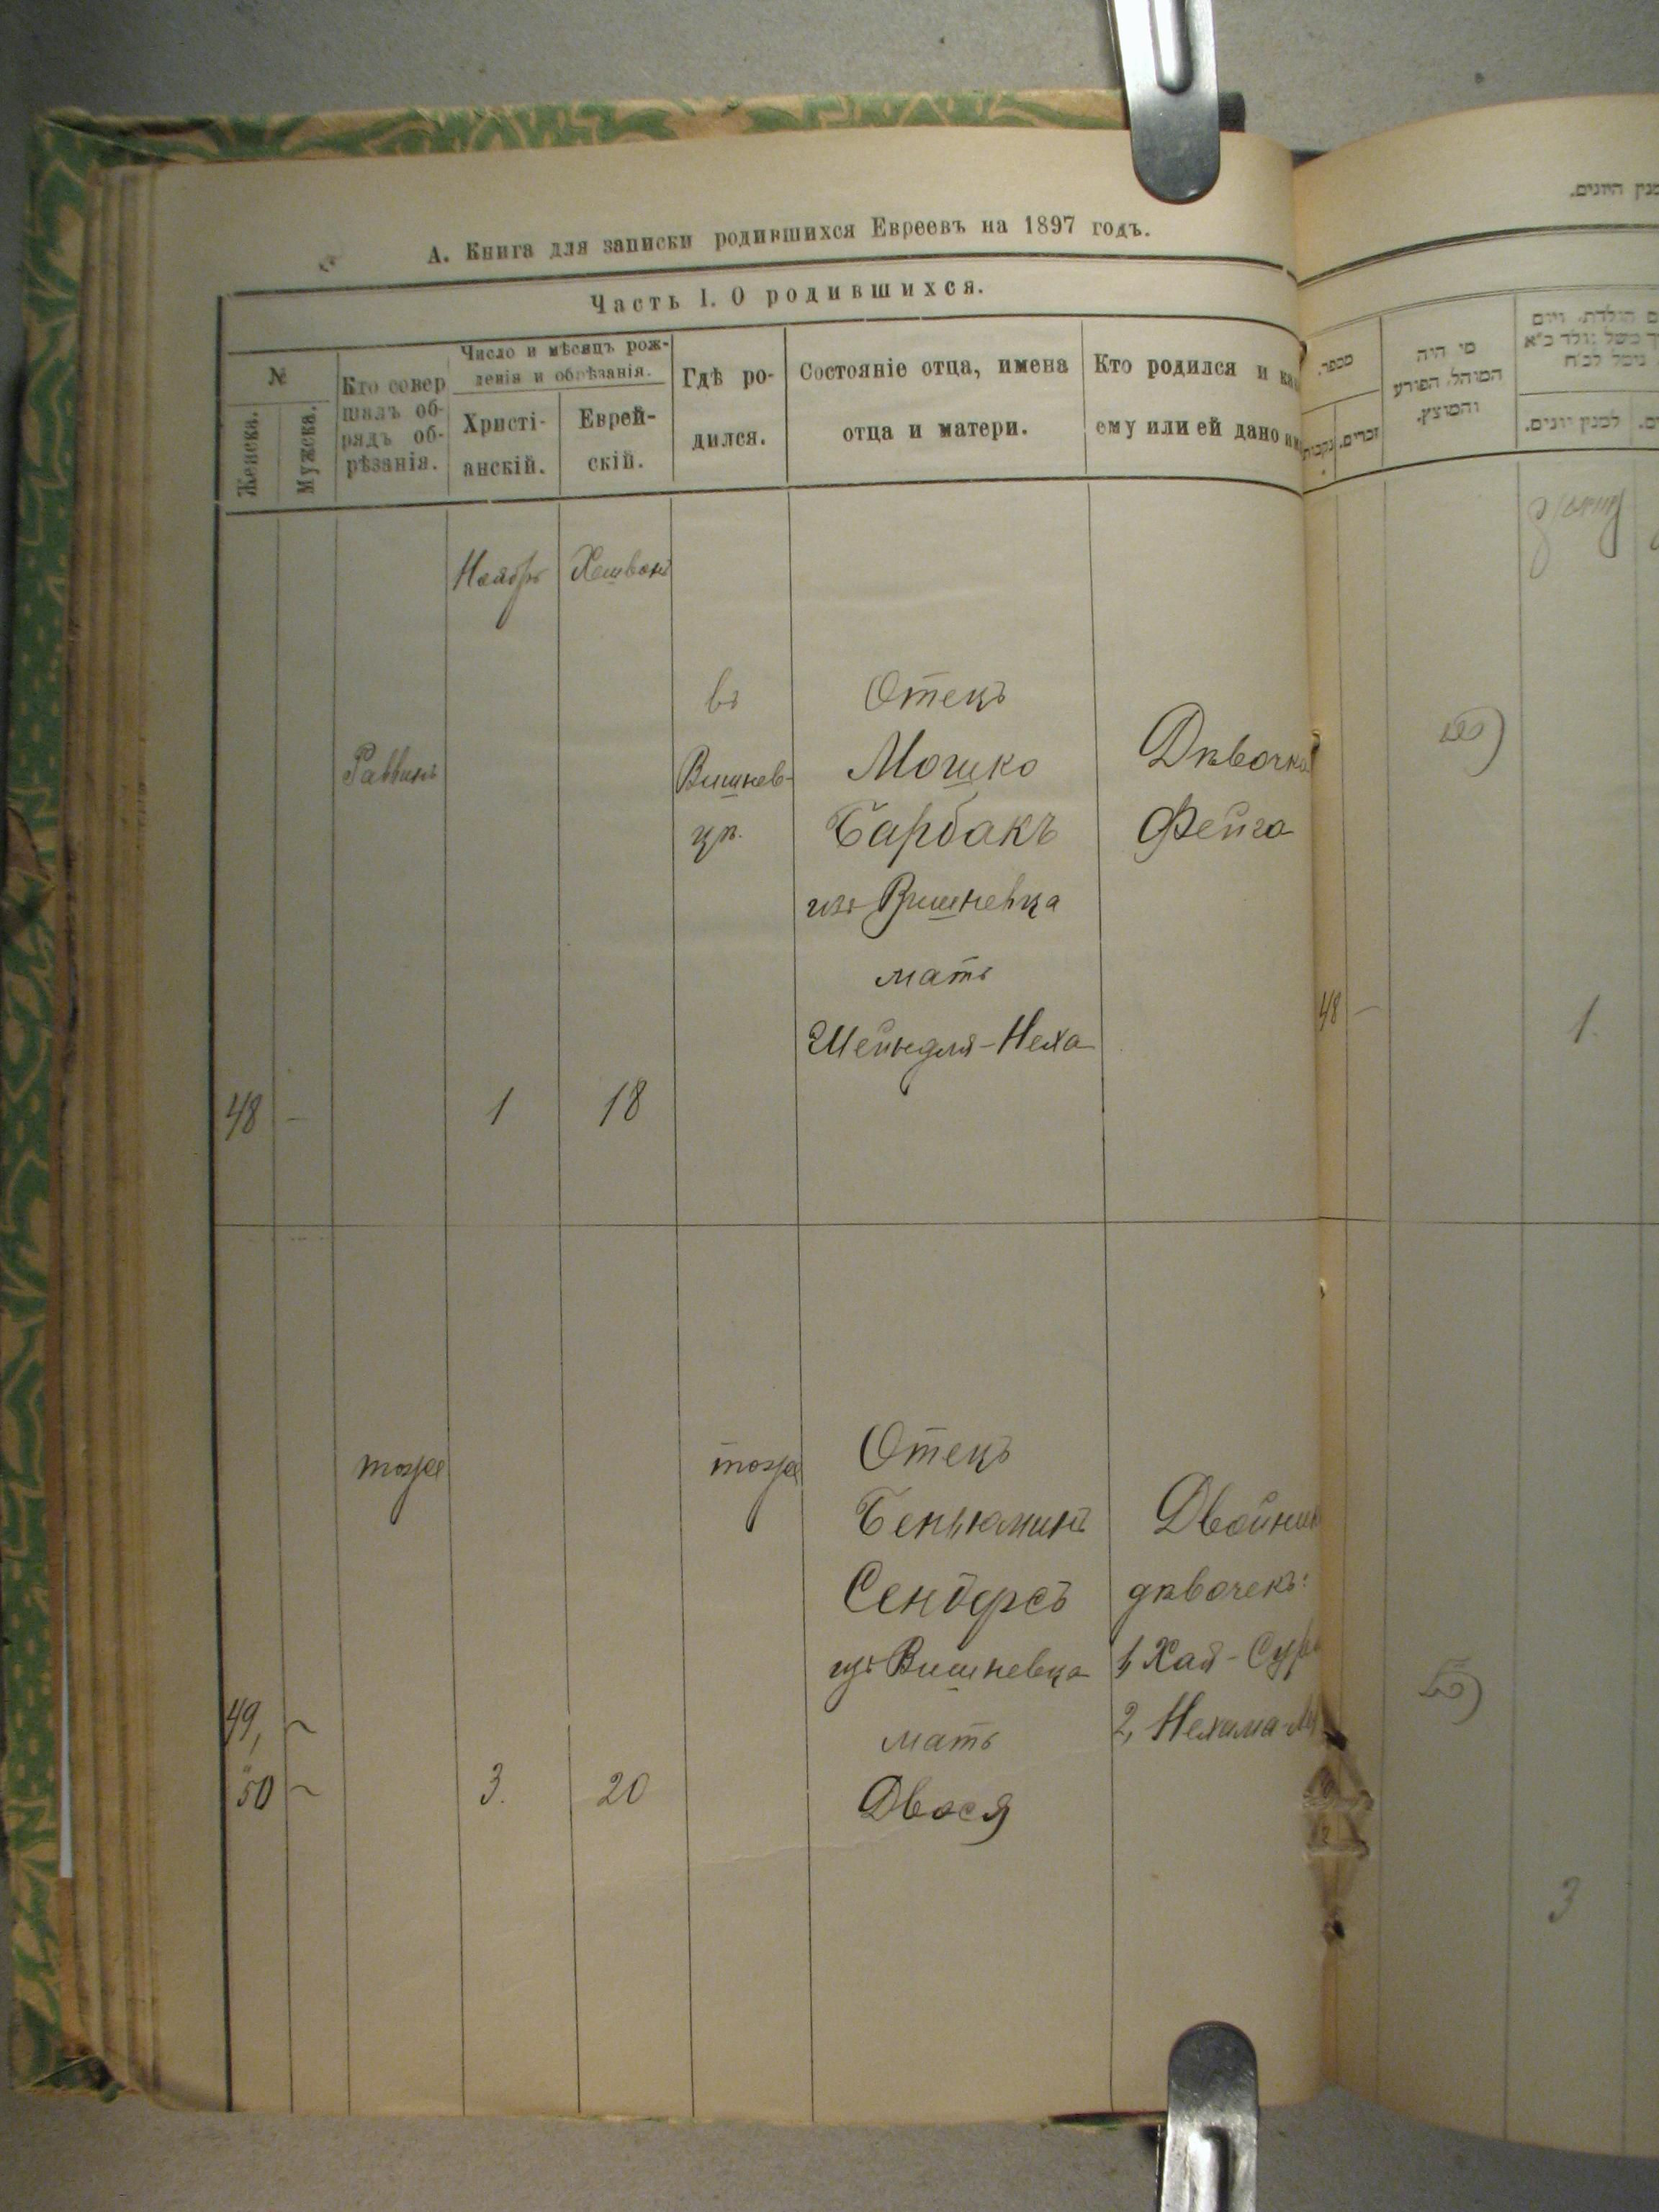 А. Книга для записки родившихся Евреевъ на 1897 годъ.
Часть I. О родившихся.
№
Женска.
Мужска.
Кто совер
шалъ об-
рядъ об-
рѣзанія.
Число и мѣсяцъ рож-
денія и обрѣзанія.
Христі-
анскій.
Еврей-
скій.
Гдѣ ро-
дился.
Состояніе отца, имена
отца и матери.
Кто родился и
ему или ей дано
Ноябрь
Хешванъ
48
-
Раввинъ
1
18
въ
Вишнев-
цѣ.
Отецъ
Мошко
Барбакъ
изъ Вишневца
мать
Шейндля-Неха
Дѣвочка
Фейга
49,
50
тоже
3.
20
тоже
Отецъ
Беньюминъ
Сендеръ
изъ Вишневца
мать
Двося
дѣвочекъ:
1, Хая-
2, Нехама-
מספר.
זכרים.
נקבות
מי היה
המוהל, הפורע
והמוצץ.
למנין יונים.
48
-
1.
3